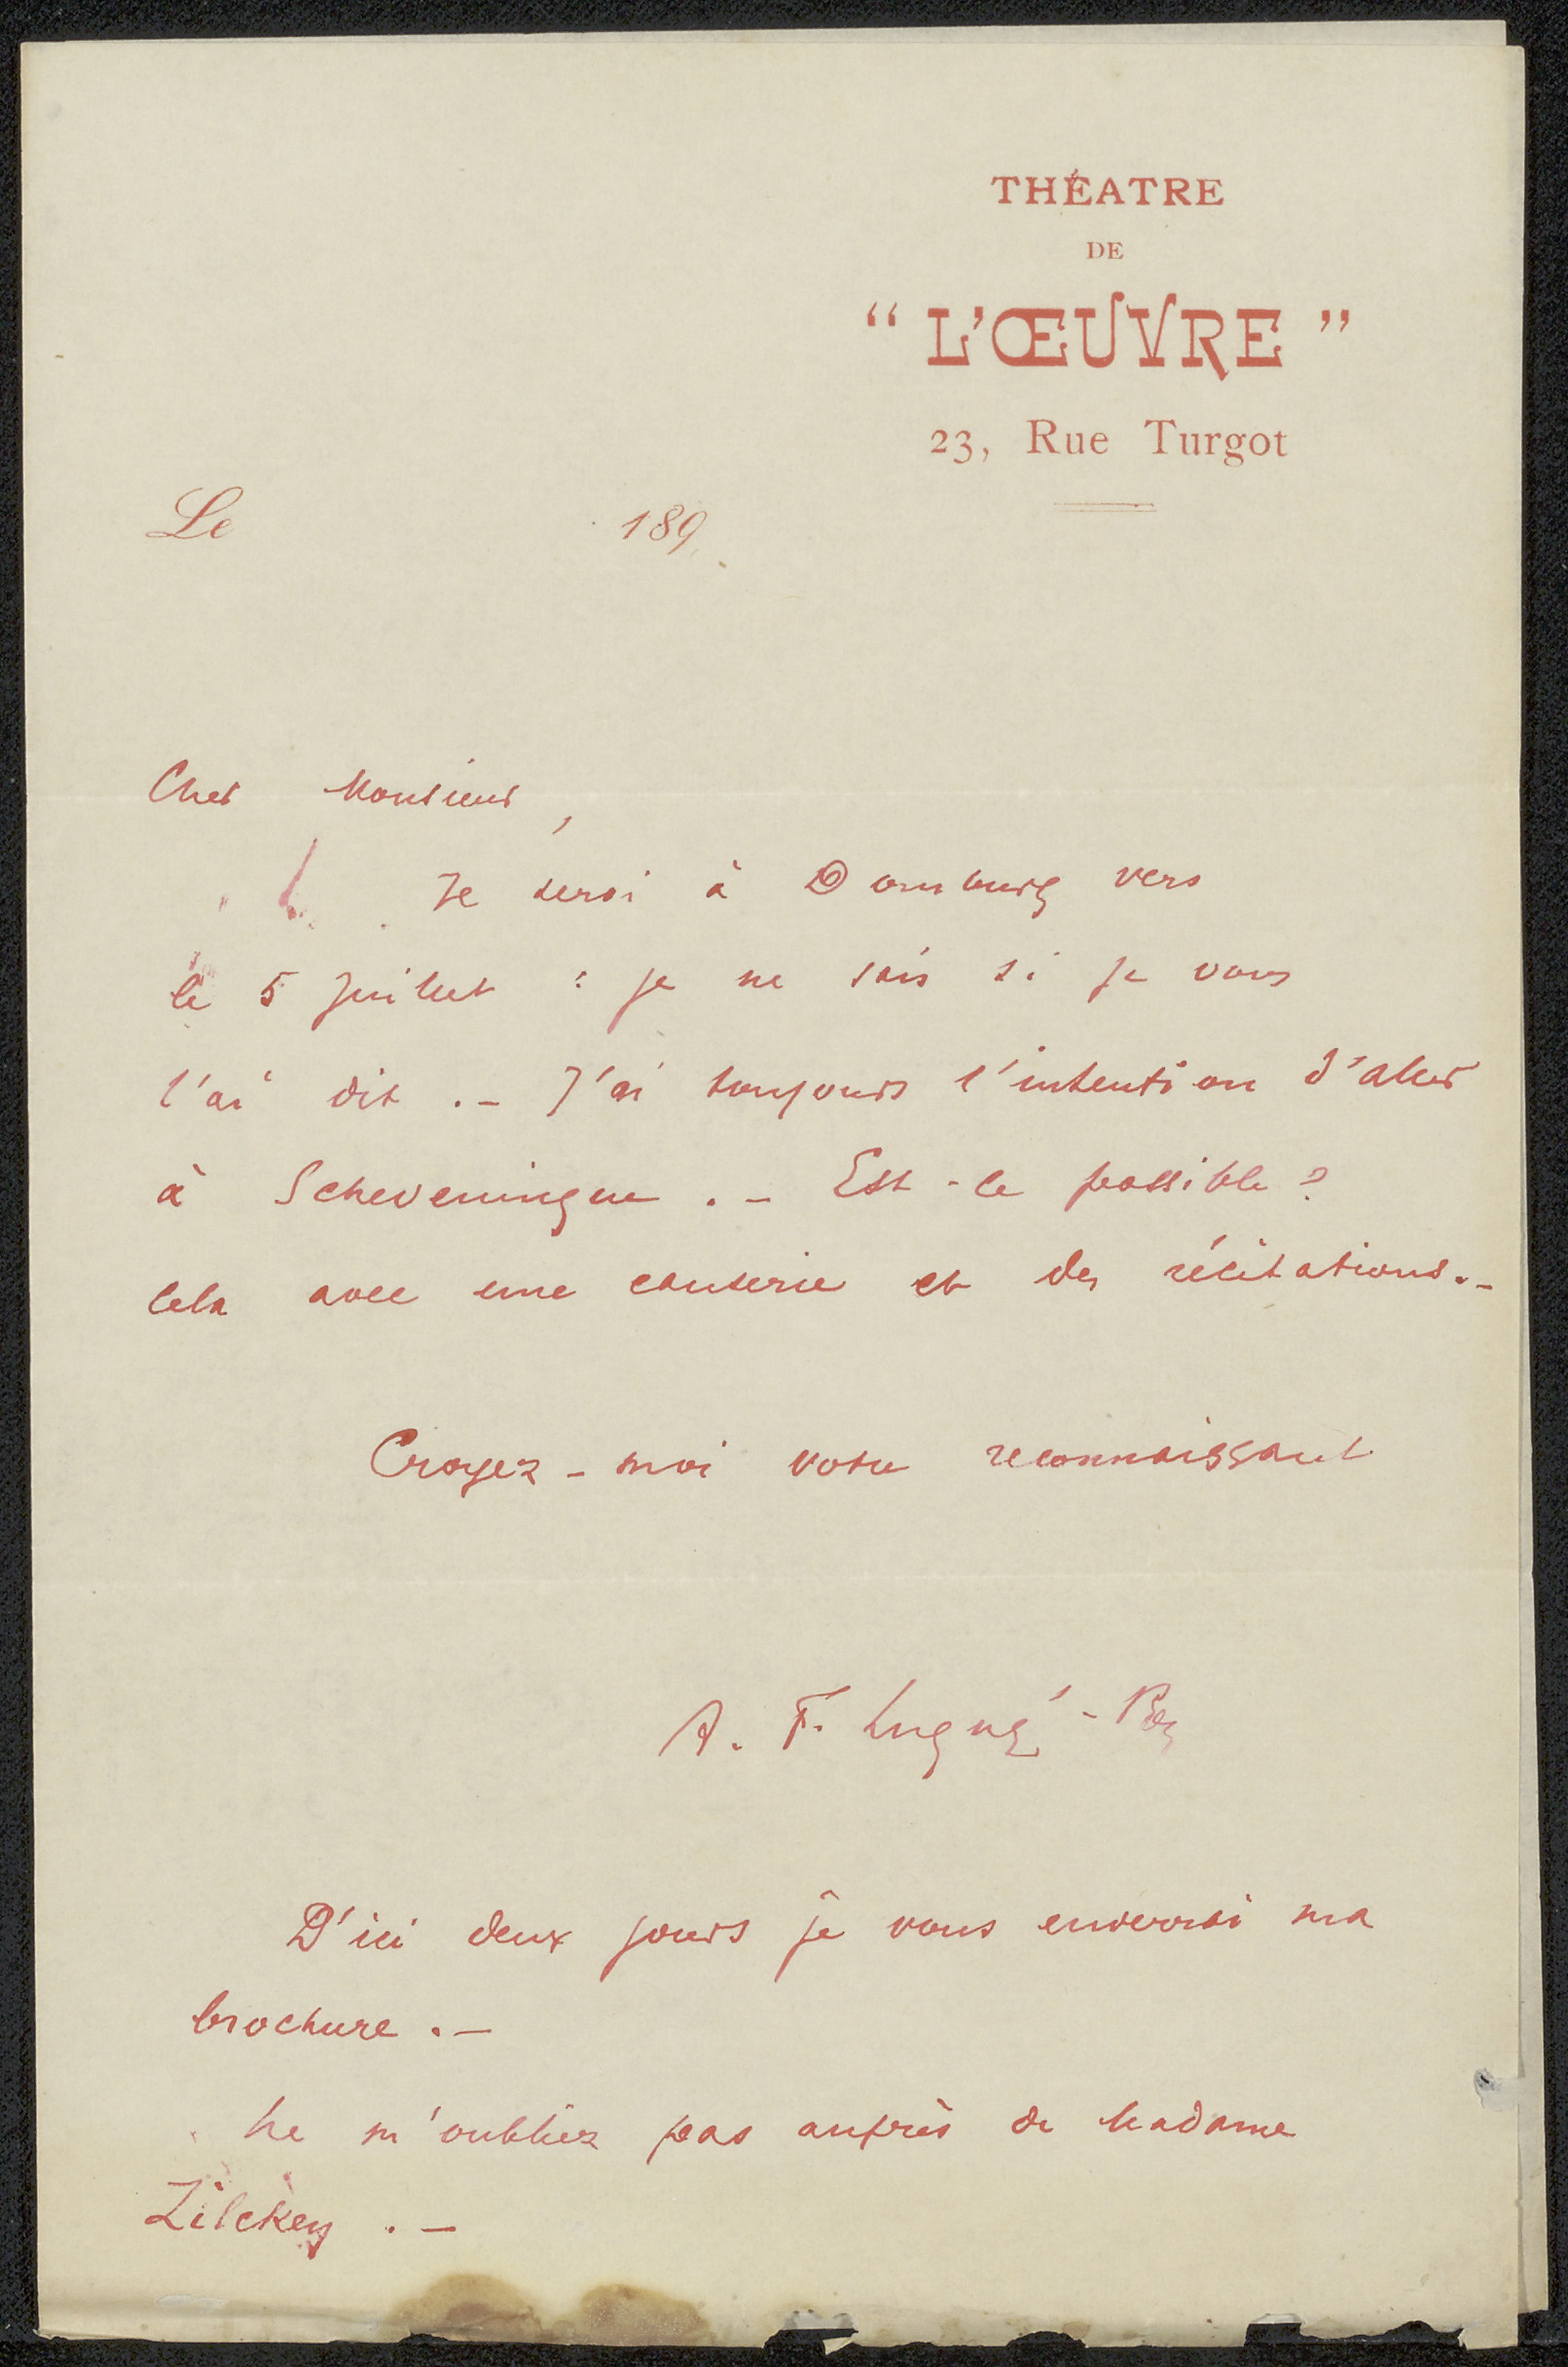 THÉATRE
DE
“ L'ŒUVRE ”
23, Rue Turgot
Le 189
Cher Monsieur,
Je serai à Domburg vers
le 5 juillet : je ne sais si je vous
l'ai dit . – J'ai toujours l'intention d'aller
à Scheveningue . – Est-ce possible ?
Cela avec une causerie et des récitations. –
Croyez-moi votre reconnaissant
A. F. Lugné-Poe
D'ici deux jours je vous enverrai ma
brochure . –
Ne m'oubliez pas auprès de Madame
Zilcken . –